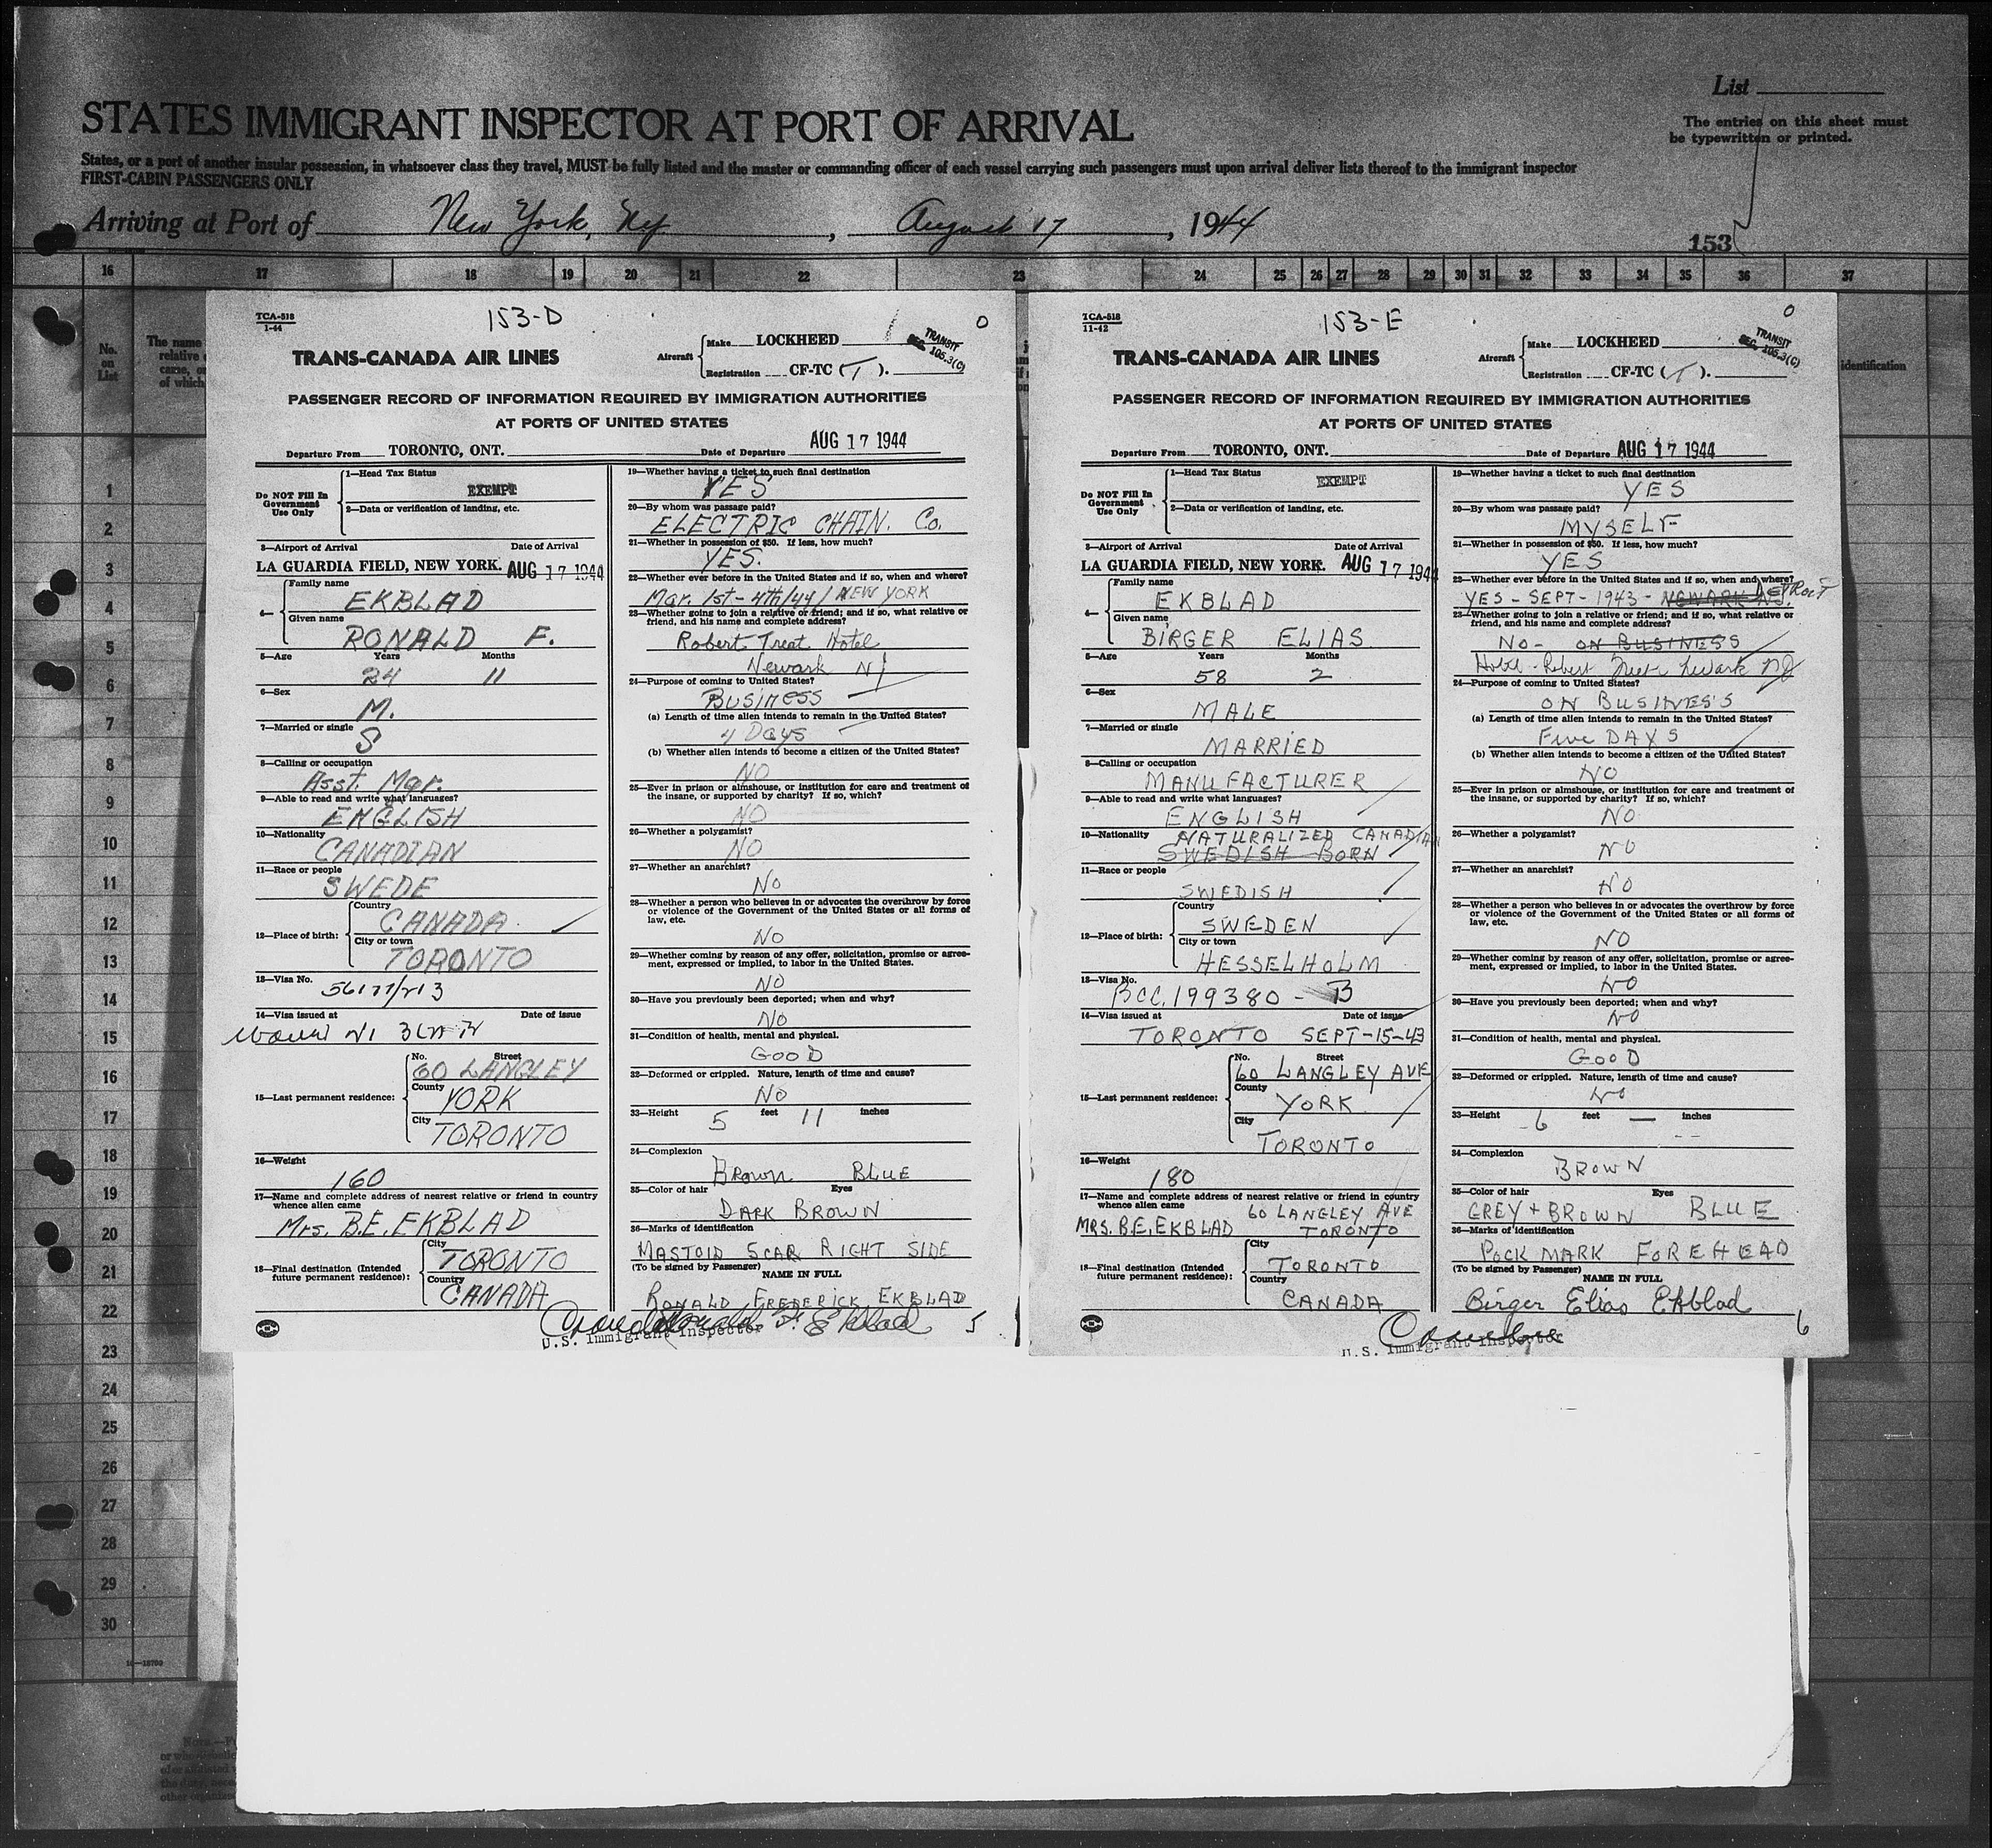 List
STATES IMMIGRANT INSPECTOR AT PORT OF ARRIVAL
The entries on this sheet must
be typewritten or printed.
States, or a port of another insular possession, in whatsoever class they travel, MUST be fully listed and the master or commanding officer of each vessel carrying such passengers must upon arrival deliver lists thereof to the immigrant inspector
FIRST-CABIN PASSENGERS ONLY
Arriving at Port of New York, Ny, August 17, 1944
153
16 17 18 19 20 21 22 23 24 25 26 27 28 29 30 31 32 33 34 35 36 37
No. on List
The name
relative
of which
identification
1
2
3
4
5
6
7
8
9
10
11
12
13
14
15
16
17
18
19
20
21
22
23
24
25
26
27
28
29
30
TCA-518
1-44
153-D
0
TRANS-CANADA AIR LINES
Aircraft
Make LOCKHEED
Registration CF-TC (T).
TRANSIT
SEC. 105.3(C)
PASSENGER RECORD OF INFORMATION REQUIRED BY IMMIGRATION AUTHORITIES
AT PORTS OF UNITED STATES
Departure From TORONTO, ONT. Date of Departure AUG 17 1944
Do NOT Fill In
Government
Use Only
1—Head Tax Status
EXEMPT
2—Data or verification of landing, etc.
3—Airport of Arrival Date of Arrival
LA GUARDIA FIELD, NEW YORK. AUG 17 1944
4—
Family name
EKBLAD
Given name
RONALD F.
5—Age Years Months
24 11
6—Sex
M.
7—Married or single
S
8—Calling or occupation
Asst. Mgr.
9—Able to read and write what languages?
ENGLISH
10—Nationality
CANADIAN
11—Race or people
SWEDE
12—Place of birth:
Country
CANADA
City or town
TORONTO
13—Visa No.
14—Visa issued at Date of issue
15—Last permanent residence:
No. Street
60 LANGLEY
County
YORK
City
TORONTO
16—Weight
160
17—Name and complete address of nearest relative or friend in country
whence alien came
Mrs. B.E. EKBLAD
18—Final destination (Intended
future permanent residence):
City
TORONTO
Country
CANADA
19—Whether having a ticket to such final destination
YES
20—By whom was passage paid?
ELECTRIC CHAIN. Co.
21—Whether in possession of $50. If less, how much?
YES.
22—Whether ever before in the United States and if so, when and where?
Mar. 1st-4th/44/ NEW YORK
23—Whether going to join a relative or friend; and if so, what relative or
friend, and his name and complete address?
Robert Treat Hotel
Newark NJ
24—Purpose of coming to United States?
BUSINESS
(a) Length of time alien intends to remain in the United States?
4 Days
(b) Whether alien intends to become a citizen of the United States?
NO
25—Ever in prison or almshouse, or institution for care and treatment of
the insane, or supported by charity? If so, which?
NO
26—Whether a polygamist?
NO
27—Whether an anarchist?
No
28—Whether a person who believes in or advocates the overthrow by force
or violence of the Government of the United States or all forms of
law, etc.
No
29—Whether coming by reason of any offer, solicitation, promise or agree-
ment, expressed or implied, to labor in the United States.
NO
30—Have you previously been deported; when and why?
No
31—Condition of health, mental and physical.
GOOD
32—Deformed or crippled. Nature, length of time and cause?
No
33—Height 5 feet 11 inches
34—Complexion
BROWN BLUE
35—Color of hair Eyes
DARK BROWN
36—Marks of identification
MASTOID SCAR RIGHT SIDE
(To be signed by Passenger)
NAME IN FULL
RONALD FREDERICK EKBLAD
Ronald F. Ekblad
U.S. Immigrant Inspector
5
TCA-518
11-42
153-E
0
TRANS-CANADA AIR LINES
Aircraft
Make LOCKHEED
Registration CF-TC (T).
TRANSIT
SEC. 105.3(C)
PASSENGER RECORD OF INFORMATION REQUIRED BY IMMIGRATION AUTHORITIES
AT PORTS OF UNITED STATES
Departure From TORONTO, ONT. Date of Departure AUG 17 1944
Do NOT Fill In
Government
Use Only
1—Head Tax Status
EXEMPT
2—Data or verification of landing, etc.
3—Airport of Arrival Date of Arrival
LA GUARDIA FIELD, NEW YORK. AUG 17 1944
4—
Family name
EKBLAD
Given name
BIRGER ELIAS
5—Age Years Months
58 2
6—Sex
MALE
7—Married or single
MARRIED
8—Calling or occupation
MANUFACTURER
9—Able to read and write what languages?
ENGLISH
10—Nationality NATURALIZED CANADIAN
SWEDISH BORN
11—Race or people
SWEDISH
12—Place of birth:
Country
SWEDEN
City or town
HESSELHOLM
13—Visa No.
BCC. 199380 - B
14—Visa issued at Date of issue
TORONTO SEPT-15-43
15—Last permanent residence:
No. Street
60 LANGLEY AVE
County
YORK
City
TORONTO
16—Weight
180
17—Name and complete address of nearest relative or friend in country
whence alien came 60 LANGLEY AVE
MRS. B.E. EKBLAD TORONTO
18—Final destination (Intended
future permanent residence):
City
TORONTO
Country
CANADA
19—Whether having a ticket to such final destination
YES
20—By whom was passage paid?
MYSELF
21—Whether in possession of $50. If less, how much?
YES
22—Whether ever before in the United States and if so, when and where?
YES - SEPT - 1943 - NEWARK NJ. DETROIT
23—Whether going to join a relative or friend; and if so, what relative or
friend, and his name and complete address?
NO - ON BUSINESS
Hotel - Robert Treat Newark NJ
24—Purpose of coming to United States?
ON BUSINESS
(a) Length of time alien intends to remain in the United States?
FIVE DAYS
(b) Whether alien intends to become a citizen of the United States?
NO
25—Ever in prison or almshouse, or institution for care and treatment of
the insane, or supported by charity? If so, which?
NO
26—Whether a polygamist?
NO
27—Whether an anarchist?
NO
28—Whether a person who believes in or advocates the overthrow by force
or violence of the Government of the United States or all forms of
law, etc.
NO
29—Whether coming by reason of any offer, solicitation, promise or agree-
ment, expressed or implied, to labor in the United States.
NO
30—Have you previously been deported; when and why?
NO
31—Condition of health, mental and physical.
GOOD
32—Deformed or crippled. Nature, length of time and cause?
NO
33—Height 6 feet — inches
34—Complexion
BROWN
35—Color of hair Eyes
GREY + BROWN BLUE
36—Marks of identification
POCK MARK FOREHEAD
(To be signed by Passenger)
NAME IN FULL
Birger Elias Ekblad
U.S. Immigrant Inspector
6
16—18700